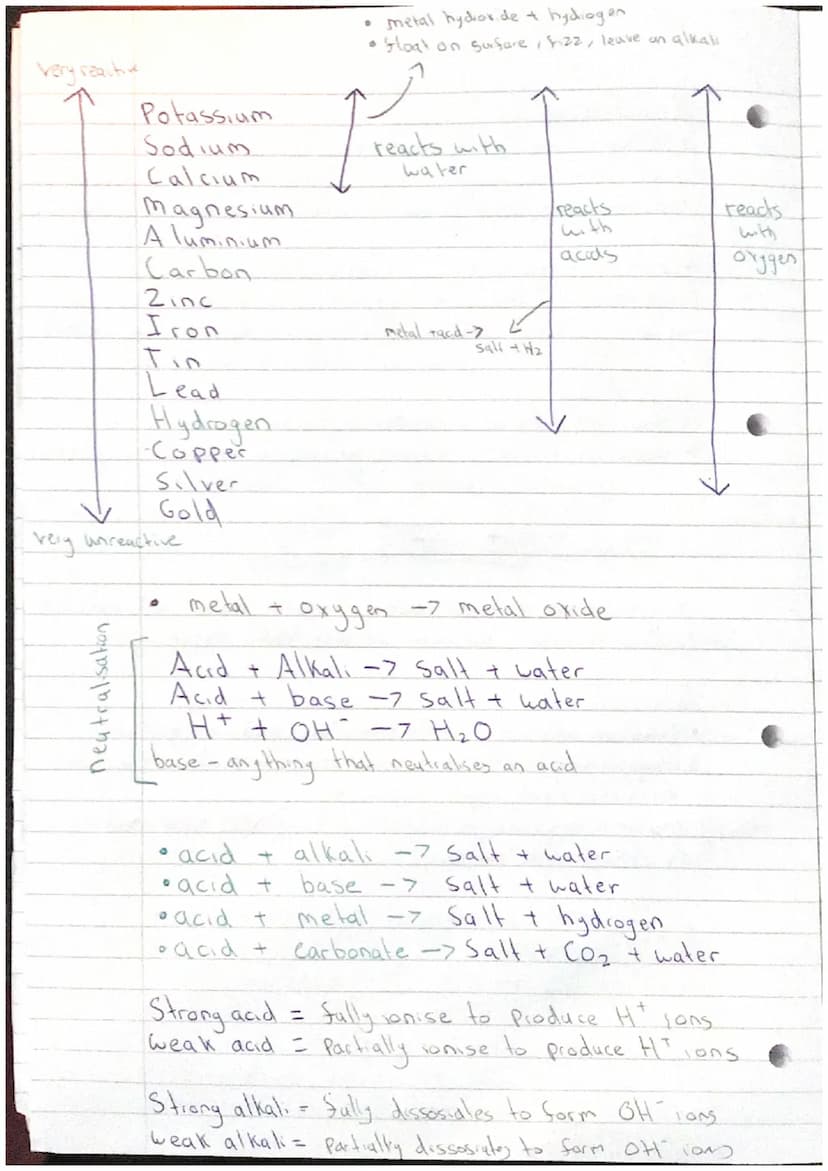 • metal hydroxide + hydrogen
• float on surface, fizz, leave an alkali
Very reactive
Potassium
Sodium
Calcium
Magnesium
Aluminium
Carbon
Zinc
Iron
Tin
Lead
Hydrogen
Copper
Silver
Gold
very unreactive
reacts with
water
reacts
with
acids
metal + acid ->
salt + H2
reacts
with
oxygen
• metal + oxygen -> metal oxide
neutralisation
Acid + Alkali -> salt + water
Acid + base -> salt + water
H⁺ + OH⁻ -> H₂O
base - anything that neutralises an acid
• acid + alkali -> salt + water
• acid + base -> salt + water
• acid + metal -> salt + hydrogen
• acid + carbonate -> salt + CO₂ + water
Strong acid = fully ionise to produce H⁺ ions
weak acid = partially ionise to produce H⁺ ions
Strong alkali = fully dissosiates to form OH⁻ ions
weak alkali = partially dissosiates to form OH⁻ ions